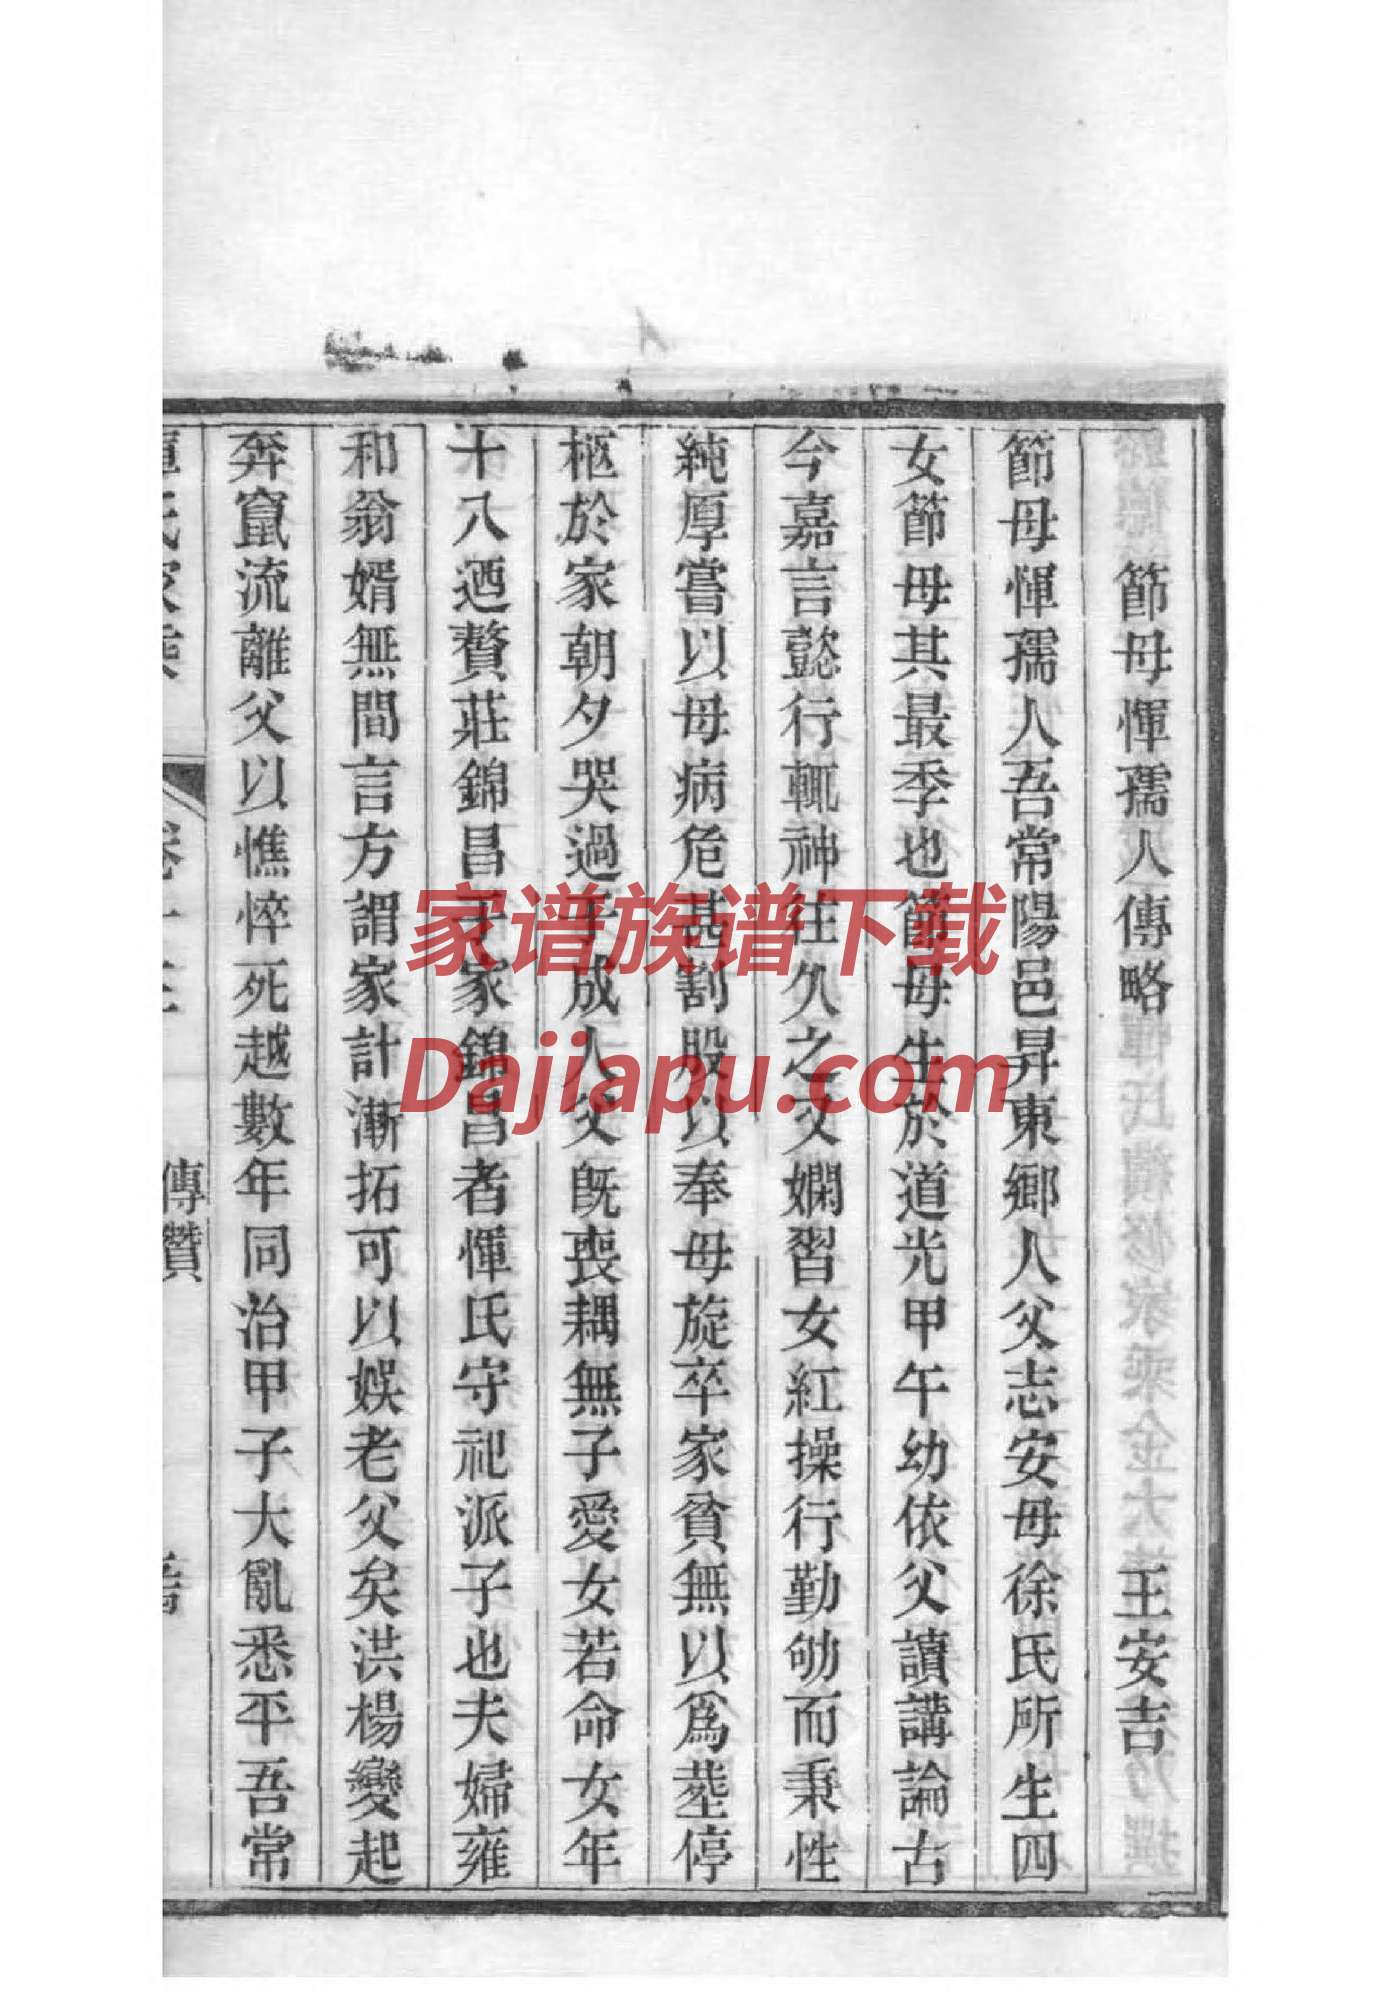 節母惲孺人傳略　王安吉
節母惲孺人吾常陽邑昇東鄉人父志安母徐氏所生四
女節母其最季也節母生於道光甲午幼依父讀講論古
今嘉言懿行輒神往久之交嫻習女紅操行勤劬而秉性
純厚嘗以母病危甚割股以奉母旋卒家貧無以爲塟停
柩於家朝夕哭過乎成人父旣喪耦無子愛女若命女年
十八迺贅莊錦昌于家錦昌者惲氏守祀派子也夫婦雍
和翁婿無間言方謂家計漸拓可以娛老父矣洪楊變起
奔竄流離父以憔悴死越數年同治甲子大亂悉平吾常
傳贊
家谱族谱下载
Dajiapu.com